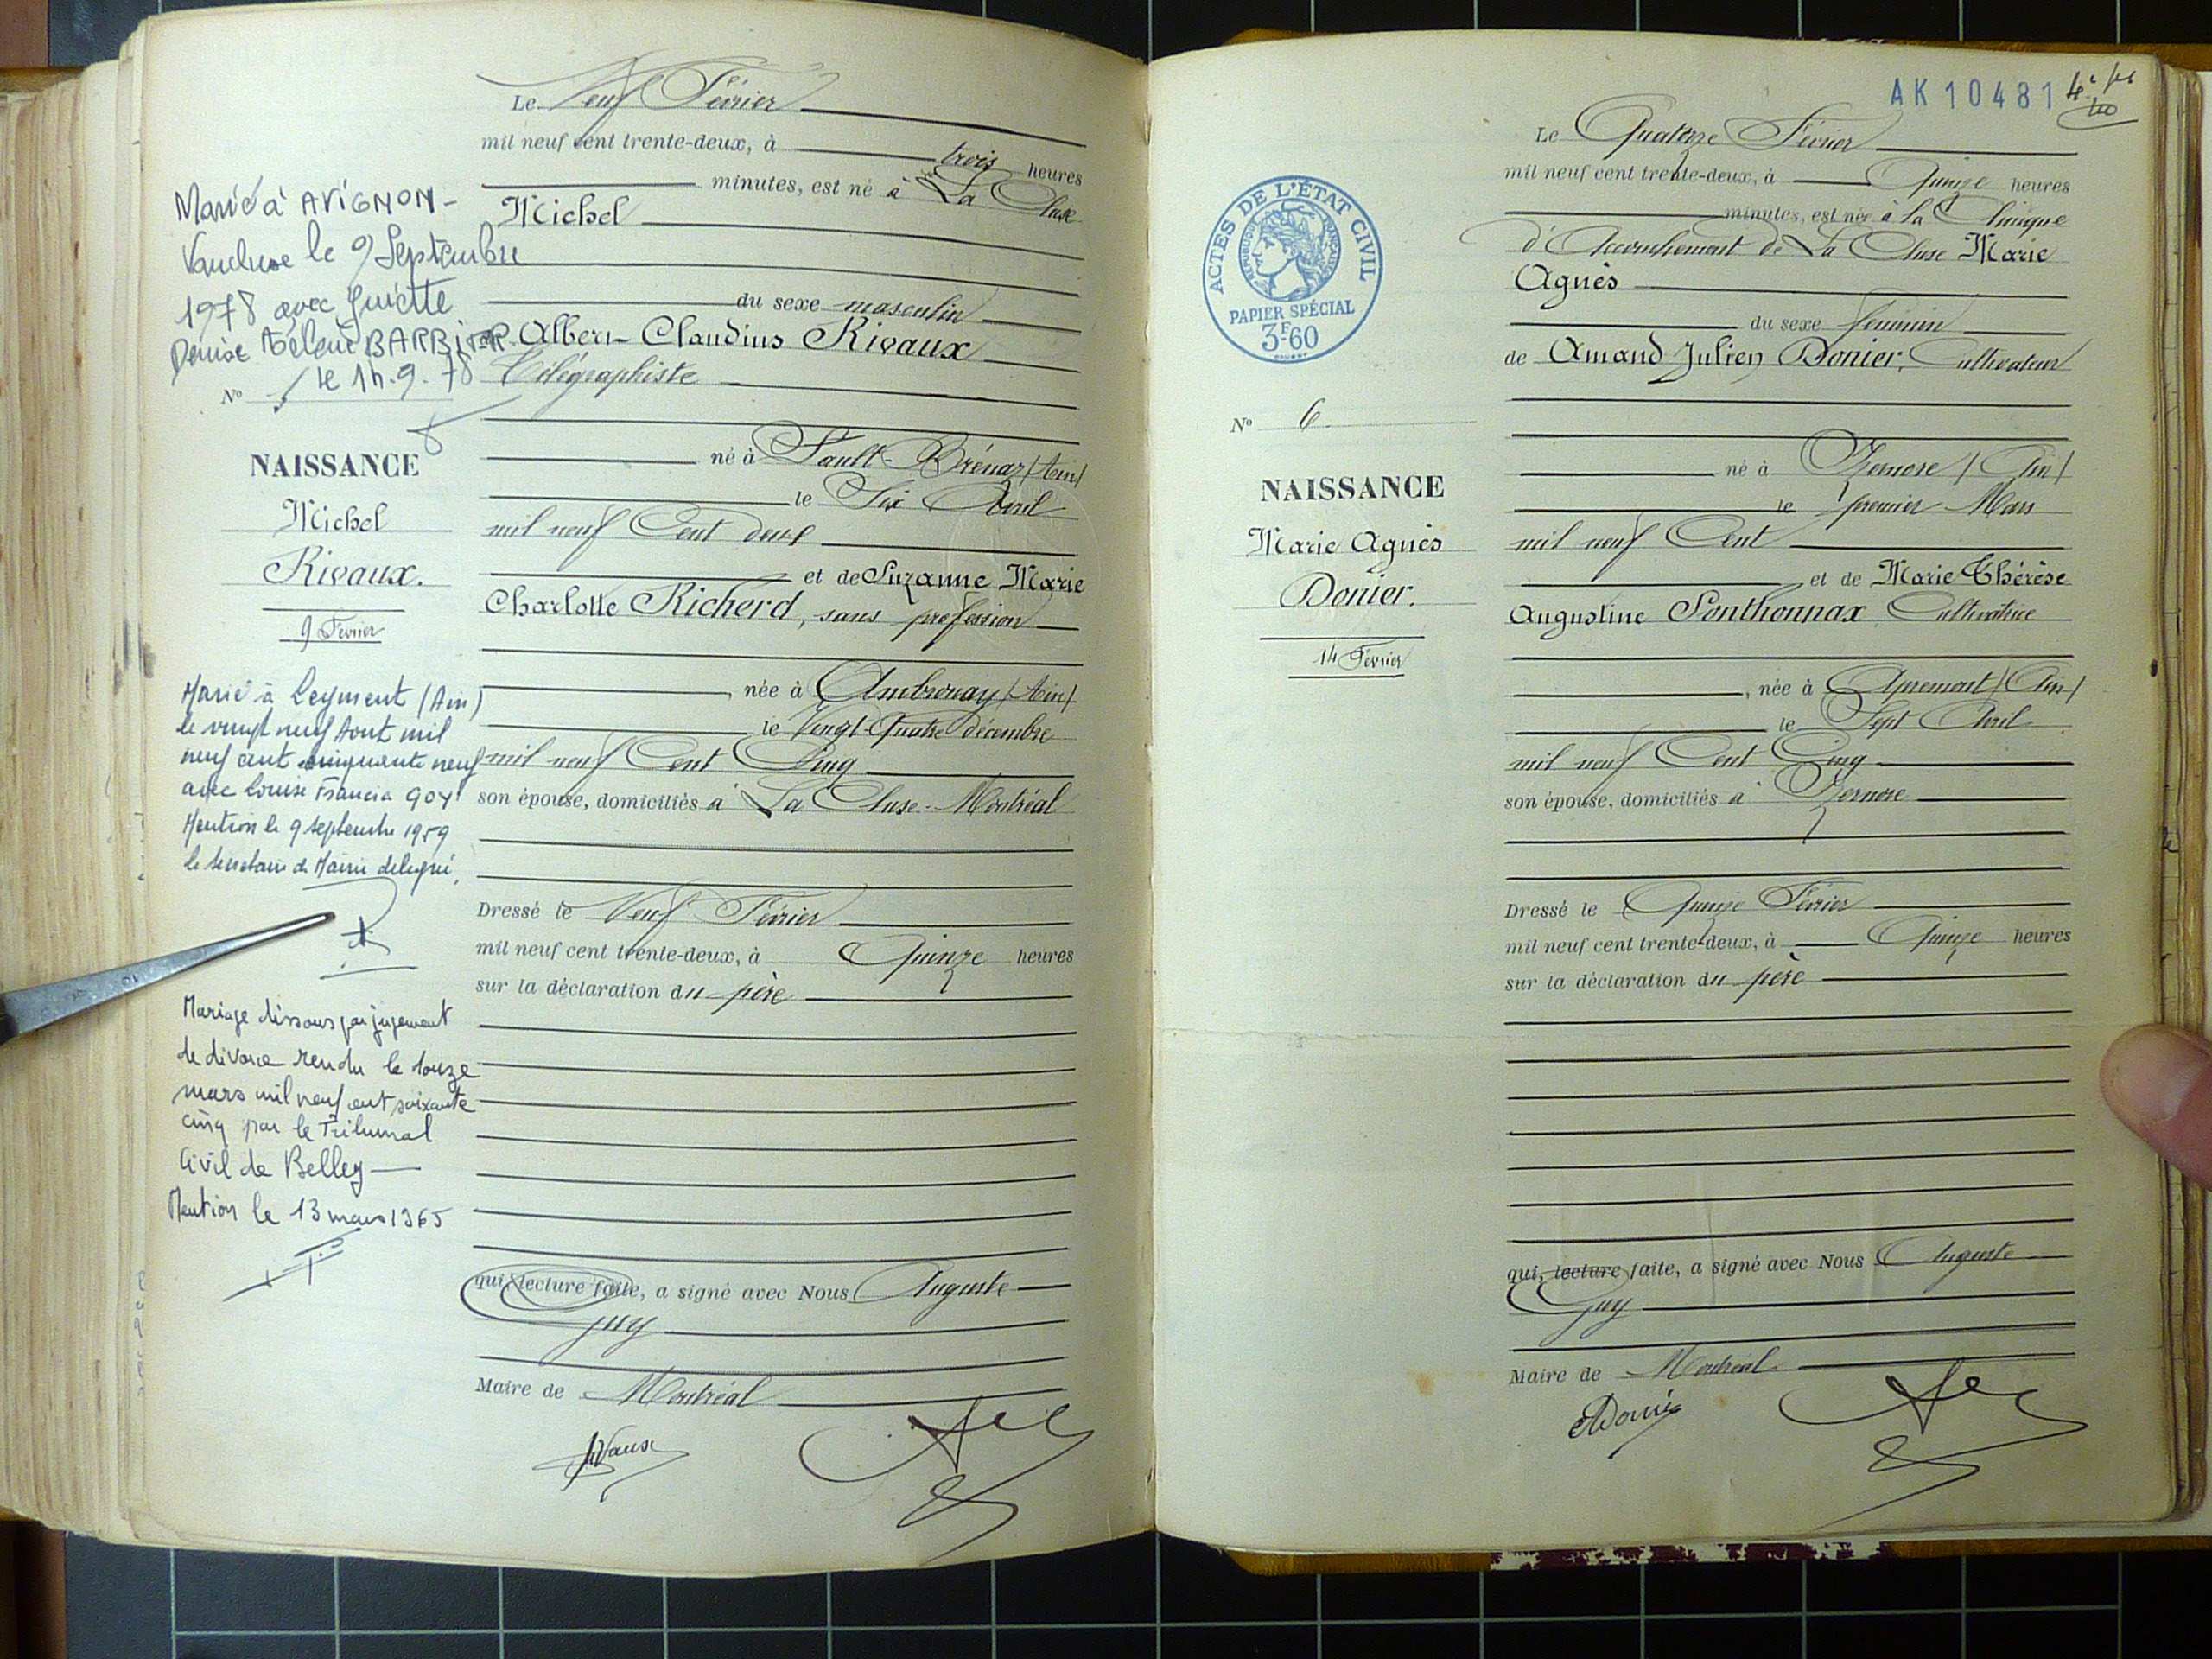 Le Neuf Février
mil neuf cent trente-deux, à trois heures
minutes, est né à La Cluse
Michel
du sexe masculin
Albert-Claudius Rivaux
Télégraphiste
né à Sault-Brénaz (Ain)
le Six Avril
mil neuf Cent deux
et de Suzanne Marie
Charlotte Richerd, sans profession
née à Ambronay (Ain)
le Vingt-Quatre décembre
mil neuf Cent Cinq
son épouse, domiciliés à La Cluse-Montréal
Dressé le Neuf Février
mil neuf cent trente-deux, à Quinze heures
sur la déclaration du père
qui, lecture faite, a signé avec Nous Auguste
Guy
Maire de Montréal
Rivaux
Marié à AVIGNON-
Vaucluse le 9 Septembre
1978 avec
Denise Hélène BARBIER
le 14.9.78
No 5
NAISSANCE
Michel
Rivaux.
9 Février
Marié à Leyment (Ain)
le vingt neuf Aout mil
neuf cent cinquante neuf
avec Louise Francia GOY
Mention le 9 septembre 1959
le secrétaire de Mairie délégué,
Mariage dissous par jugement
de divorce rendu le douze
mars mil neuf cent soixante
cinq par le Tribunal
Civil de Belley
Mention le 13 mars 1965
AK 10481
ACTES DE L'ÉTAT CIVIL
RÉPUBLIQUE FRANÇAISE
PAPIER SPÉCIAL
3F60
No 6.
NAISSANCE
Marie Agnès
Donier.
14 Février
Le Quatorze Février
mil neuf cent trente-deux, à Quinze heures
minutes, est née à la Clinique
d'Accouchement de La Cluse Marie
Agnès
du sexe féminin
de Amand Julien Donier, Cultivateur
né à Izernore (Ain)
le premier Mars
mil neuf Cent
et de Marie Thérèse
Augustine Ponthonnax Cultivatrice
, née à Apremont (Ain)
le Sept Avril
mil neuf Cent Cinq
son épouse, domiciliés à Izernore
Dressé le Quinze Février
mil neuf cent trente-deux, à Quinze heures
sur la déclaration du père
qui, lecture faite, a signé avec Nous Auguste
Guy
Maire de Montréal
ADonier